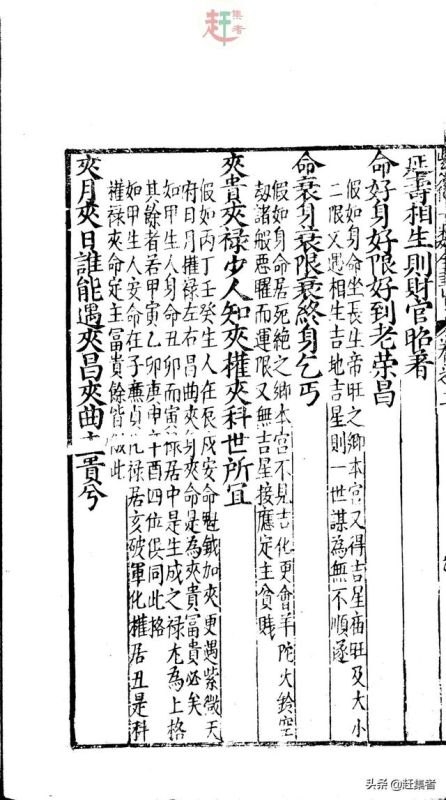 赶集者
延壽相生則財官昭著
命好身好限好到老榮昌
假如身命坐長生帝旺之鄉本宮又得吉星廟旺及大小
二限又遇相生吉地吉星則一世謀為無不順遂
命衰身衰限衰終身乞丐
假如身命居死絶之鄉本宮不見吉化更會羊陀火鈴空
刼諸般惡曜而運限又無吉星接應定主貧賤
夾貴夾禄少人知夾權夾科世所宜
假如丙丁壬癸生人在辰戌安命魁鉞加夾更遇紫微天
府日月權禄左右昌曲夾身夾命是為夾貴富貴必矣
如甲生人身命丑卯而寅禄居中是生成之禄尤為上格
其餘者若甲寅乙卯庚申辛酉四位俱同此格
如甲生人安命在子廉貞化禄居亥破軍化權居丑是科
權禄夾命定主富貴餘皆倣此
夾月夾日誰能遇夾昌夾曲主貴兮
头条 @赶集者